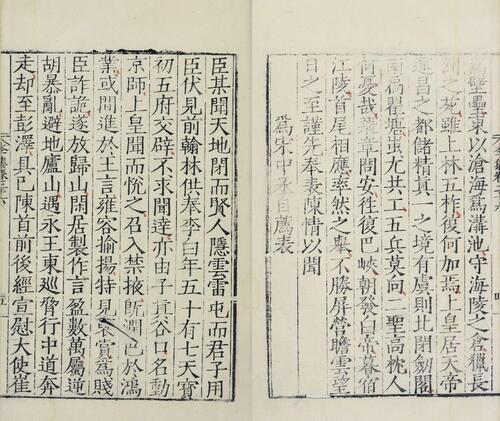 爲壁壘東以滄海爲溝池守海陵之倉獵長
洲之苑雖上林五柞復何加焉上皇居天帝
運昌之都儲精真一之境有虞則北閉劍閣
南扃瞿塘蚩尤共工五兵莫向二聖高枕人
何憂哉飛章問安往復巴峽朝發白帝暮宿
江陵首尾相應率然之舉不勝屏營瞻雲望
日之至謹先奉表陳情以聞
爲宋中丞自薦表
臣某聞天地閉而賢人隱雲雷屯而君子用
臣伏見前翰林供奉李白年五十有七天寶
初五府交辟不求聞達亦由子真谷口名動
京師上皇聞而悅之召入禁掖既潤色於鴻
業或間進於王言雍容揄揚特見褒賞爲賤
臣詐詭遂放歸山閑居製作言盈數萬屬逆
胡暴亂避地廬山遇永王東巡脅行中道奔
走却至彭澤具已陳首前後經宣慰大使崔